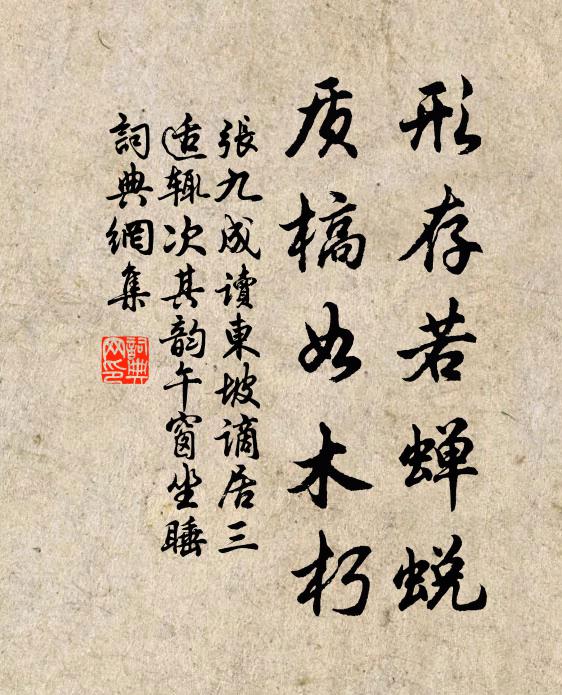 形存若蝉蜕
质槁如木朽
張九成讀東坡謫居三
适辄次其韵午窗坐睡
詞典網集
詞典網印